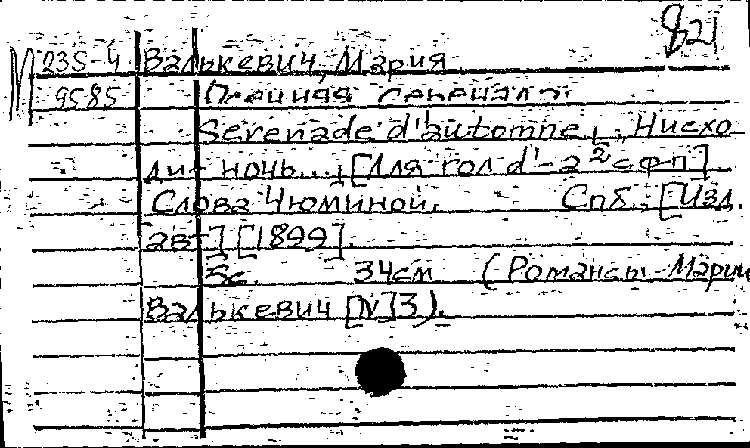 821
М 235-4 Валькевич, Мария
9585 серенада.
Serenade d'automne, „Нисхо
дит ночь..., [Для гол d'-a² с фп]
Слова Чюминой. Спб., [Изд.
авт] [1899].
5с. 34см (Романсы Марии
Валькевич [N]3).